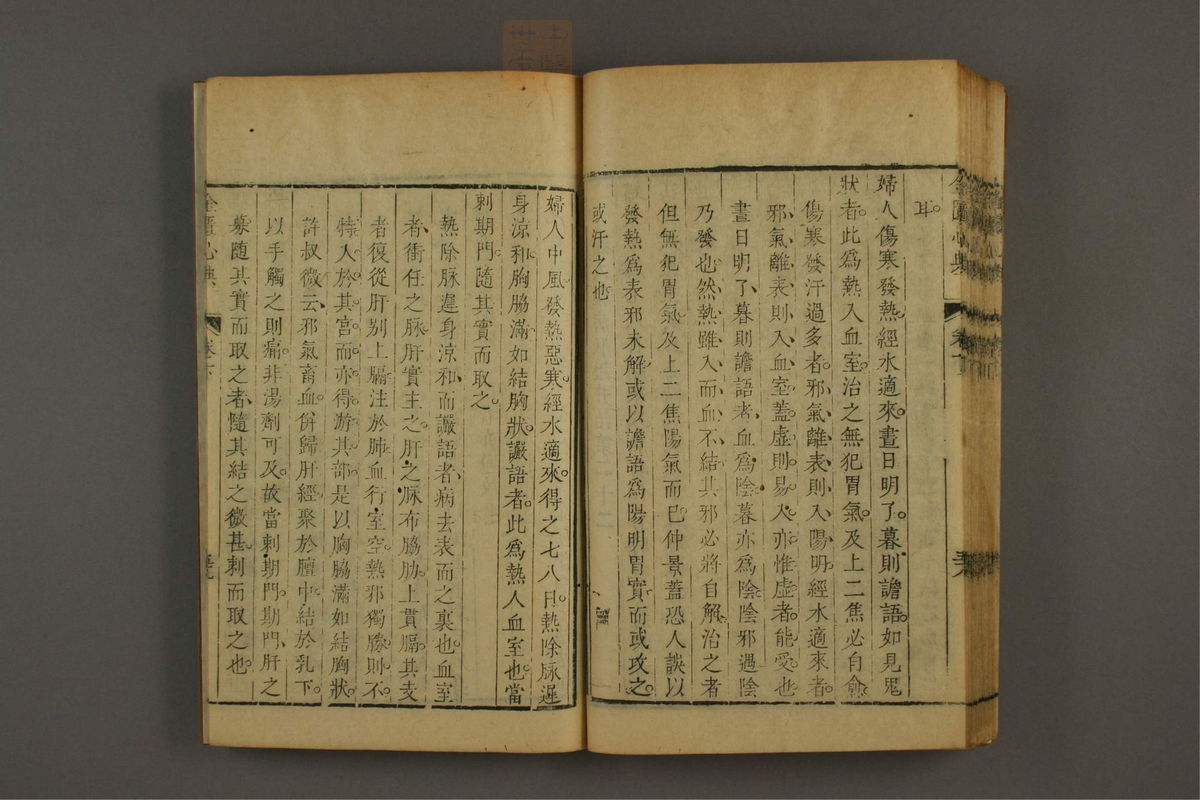 耳。
婦人傷寒發熱經水適來。晝日明了。暮則譫語。如見鬼
狀者。此爲熱入血室。治之無犯胃氣及上二焦必自愈
傷寒發汗過多者。邪氣離表則入陽明。經水適來者。
邪氣離表則入血室。蓋虛則易入。亦惟虛者能受也
晝日明了。暮則譫語者。血爲陰。暮亦爲陰。陰邪遇陰
乃發也。然熱雖入而血不結。其邪必將自解。治之者
但無犯胃氣。及上二焦陽氣而已。仲景蓋恐人誤以
發熱爲表邪未解。或以譫語爲陽明胃實。而或攻之。
或汗之也。
婦人中風發熱惡寒。經水適來。得之七八日。熱除脉遲
身涼和。胸脇滿如結胸狀。讝語者。此爲熱入血室也。當
刺期門。隨其實而取之。
熱除脉遲身涼和。而讝語者。病去表而之裏也。血室
者。衝任之脉。肝實主之。肝之脉布脇肋。上貫膈。其支
者復從肝别上膈。注於肺。血行室空。熱邪獨勝。則不
特入於其宫。而亦得游其部。是以胸脇滿如結胸狀。
許叔微云。邪氣畜血。併歸肝經。聚於膻中。結於乳下。
以手觸之則痛。非湯劑可及。故當刺期門。期門。肝之
募。隨其實而取之者。隨其結之微甚。刺而取之也。
心典
卷下